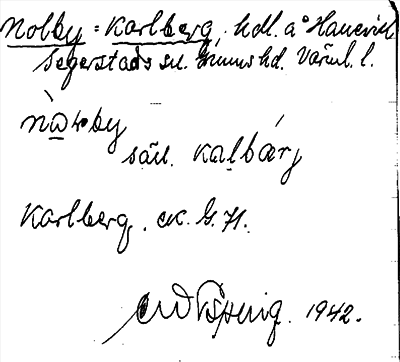 Nolby = Karlberg, hdl. å Hanevik
Segerstads sn. Grums hd. Värml. l.
nòlby
säll. kalbárj
Karlberg. ek. G. K.
1942.